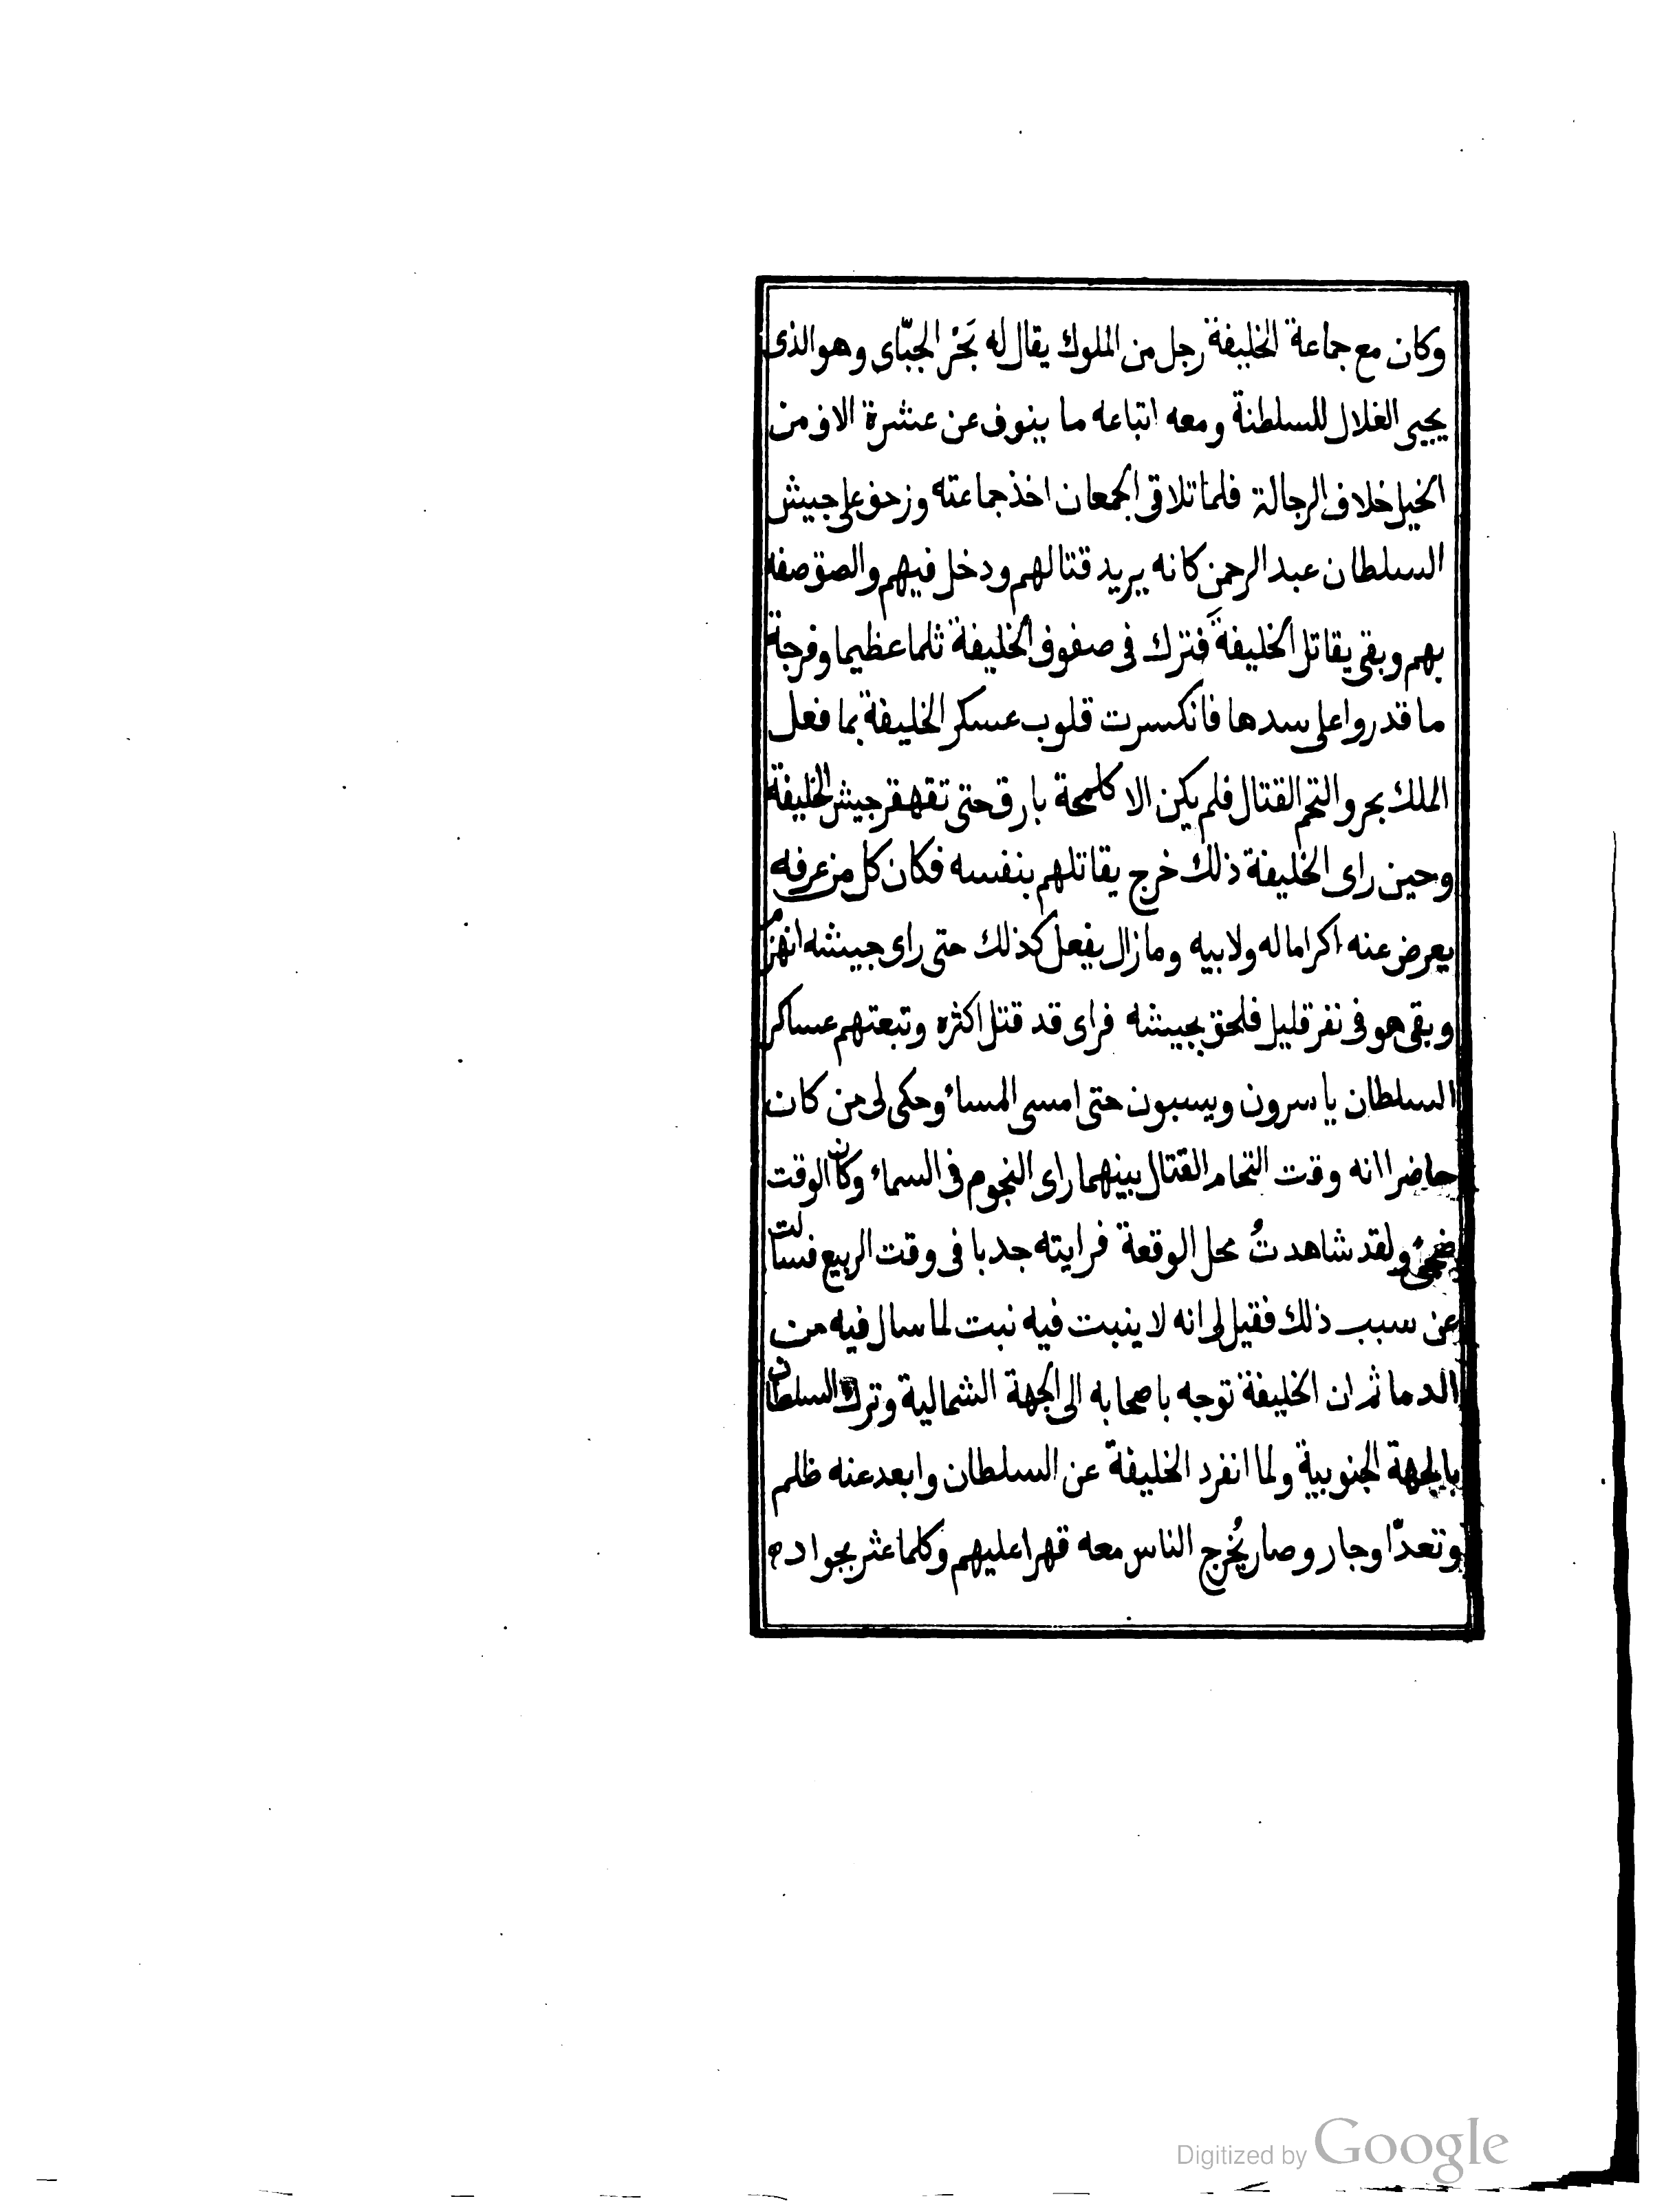 وكان مع جماعة الخليفة رجل من الملوك يقال له بَحَرْ الجبّاى وهو الذى
يجبى الغلال للسلطنة ومعه اتباعه ما ينوف عن عشرة الاف من
الخيل خلاف الرجالة فلما تلاقى الجمعان اخذ جماعته وزحف على جيش
السلطان عبد الرحمن كانه يريد قتالهم ودخل فيهم والصق صفه
بهم وبقى يقاتل الخليفةَ فترك فى صفوف الخليفة ثلما عظيما وفرجة
ما قدروا على سدها فانكسرت قلوب عسكر الخليفة بما فعل
الملك بحر والتحم القتال فلم يكن الا كلمحة بارق حتى تقهقر جيش الخليفة
وحين راى الخليفة ذلك خرج يقاتلهم بنفسه فكان كل من عرفه
يعرض عنه اكراما له ولابيه وما زال يفعل كذلك حتى راى جيشه انهزم
وبقى هو فى نفر قليل فلحق بجيشه فراى قد قتل اكثره وتبعتهم عساكر
السلطان ياسرون ويسبون حتى امسى المساء وحكى لى من كان
حاضرا انه وقت التحام القتال بينهما راى النجوم فى السماء وكان الوقت
ضحىً ولقد شاهدتُ محل الوقعة فرايته جدبا فى وقت الربيع فسالت
عن سبب ذلك فقيل لى انه لا ينبت فيه نبت لما سال فيه من
الدما ثم ان الخليفة توجه باصحابه الى الجهة الشمالية وترك السلطان
بالجهة الجنوبية ولما انفرد الخليفة عن السلطان وابعد عنه ظلم
وتعدّا وجار وصار يُخرج الناس معه قهرا عليهم وكلما عثر بجواد
Digitized by Google